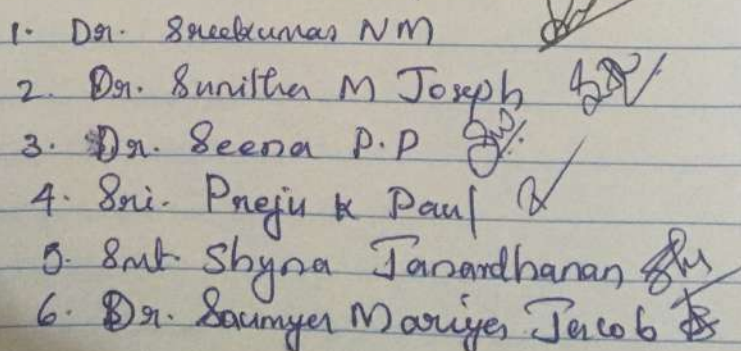 1. Dr. Sreekumar N M
2. Dr. Sunitha M Joseph
3. Dr. Seena P.P
4. Sri. Preju K Paul
5. Smt. Shyna Janardhanan
6. Dr. Saumya Mariya Jacob